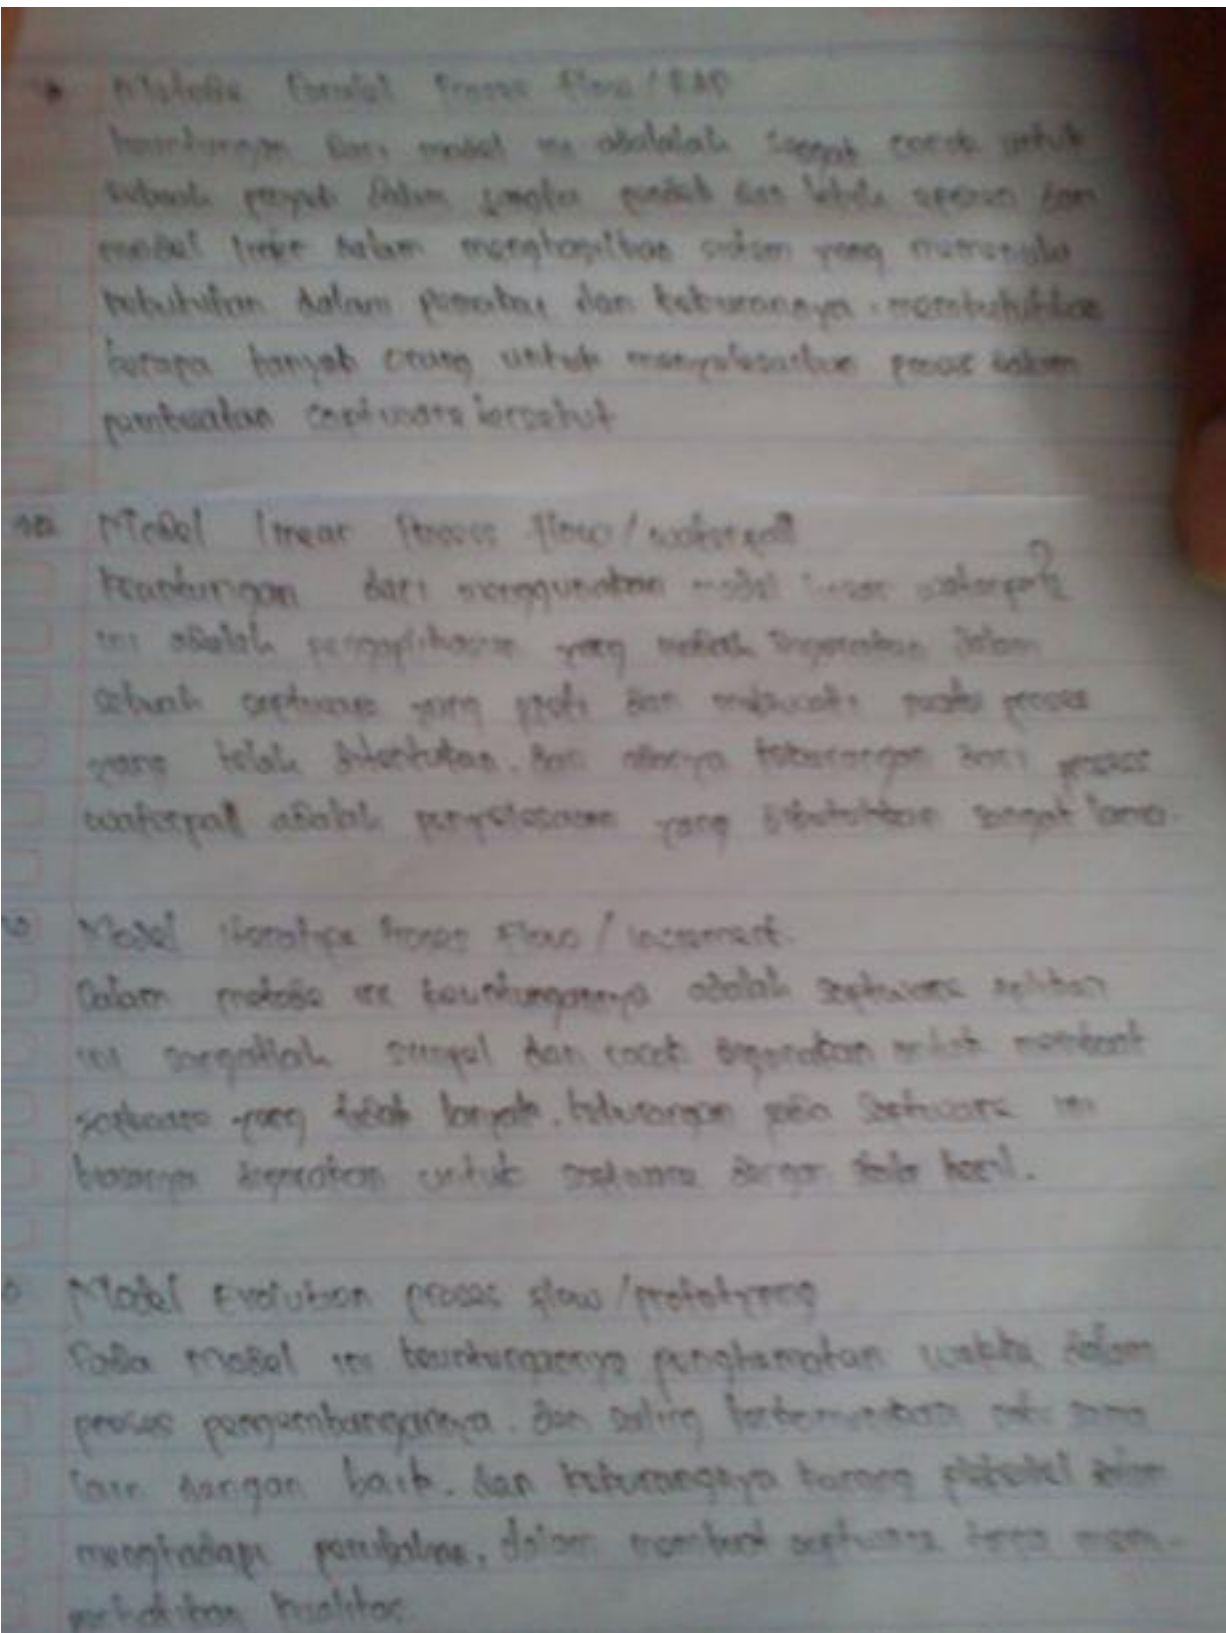 Metode Paralel Proses Flow / RAD
keuntungan dari model ini adalalah sangat cocok untuk
sebuah proyek dalam jangka pendek dan lebih dan
model linier dalam menghasilkan sistem yang
kebutuhan dalam pemakai dan kekurannya membutuhkan
berapa banyak orang untuk menyelesaikan proses dalam
pembuatan software tersebut
Model linear Proses flow / waterfall
Keuntungan dari menggunakan model linear waterfall
ini adalah pengaplikasian yang mudah digunakan dalam
sebuah software yang dan proses
yang telah ditentukan. dan kekurangan dari proses
waterfall adalah penyelesaian yang dibutuhkan sangat lama.
Model Proses Flow / increment.
Dalam metode ini keuntungannya adalah software
ini sangatlah simpel dan cocok digunakan untuk membuat
software yang tidak banyak. kekurangan pada software ini
biasanya digunakan untuk software dengan skala kecil.
Model Evolution proses flow / prototyping
Pada Model ini keuntungannya penghematan waktu dalam
proses pengembangannya. dan saling satu sama
lain dengan baik. dan kekurangnya kurang dalam
menghadapi perubahan. dalam membuat software tanpa mem-
perhatikan kualitas